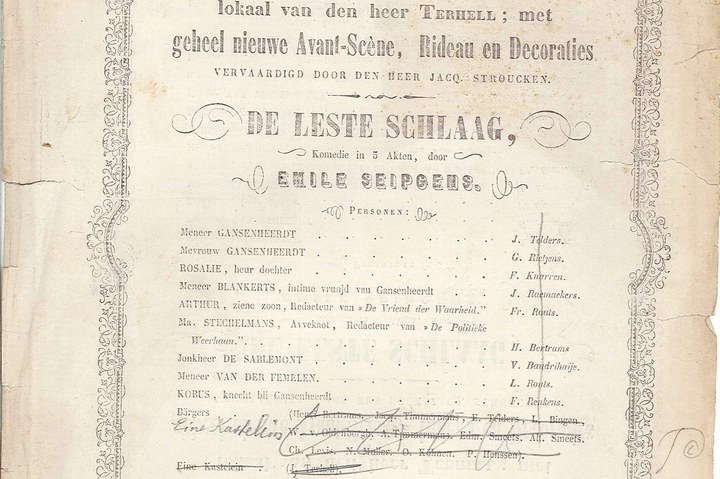 lokaal van den heer TERHELL; met
geheel nieuwe Avant-Scène, Rideau en Decoraties
VERVAARDIGD DOOR DEN HEER JACQ. STROUCKEN.
DE LESTE SCHLAAG,
Komedie in 5 Akten, door
EMILE SEIPGENS.
PERSONEN:
Meneer GANSENHEERDT . . . . . . J. Telders.
Mevrouw GANSENHEERDT . . . . . . G. Rietjens.
ROSALIE, heur dochter . . . . . . F. Knarren.
Meneer BLANKERTS, intime vrunjd van Gansenheerdt . . . J. Raemaekers.
ARTHUR, ziene zoon, Redacteur van »De Vriend der Waarheid." Fr. Routs.
Mr. STECHELMANS, Avvekaot, Redacteur van »De Politieke
Weerhaun." . . . . . . H. Bertrams
Jonkheer DE SABLEMONT . . . . . . V. Baudrihaije.
Meneer VAN DER FEMELEN. . . . . . L. Routs.
KOBUS, knecht bij Gansenheerdt . . . . . F. Renkens.
Börgers (Henri Bertrams, Jacq. Timmermans, E. Telders, L. Bingen,
Eine Kastelein A. Timmermans, Edm. Smeets. Alf. Smeets.
Ch. Levis, N. Muller, O. Köhnen, P. Houssen).
Eine Kastelein . . (J. Terhell).